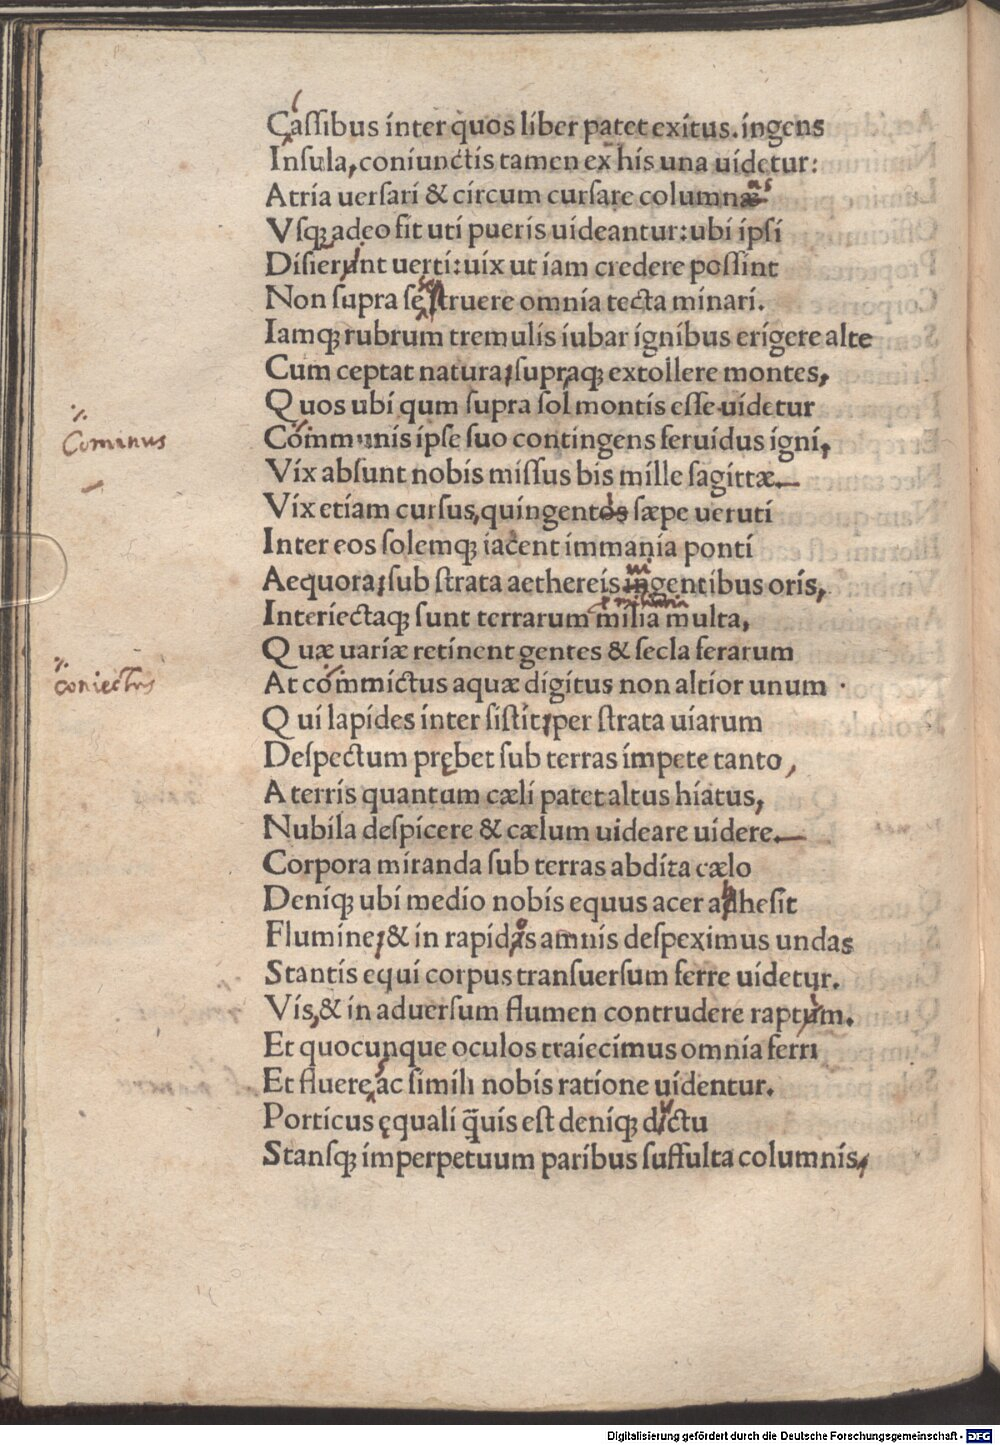 Caſſibus inter quos liber patet exitus. ingens
Inſula, coniunctis tamen ex his una uidetur:
Atria uerſari & circum curſare columnæ as
Vſq; adeo fit uti pueris uideantur: ubi ipſi
Diſierunt uerti: uix ut iam credere poſſint
Non ſupra ſe ſtruere omnia tecta minari.
Iamq; rubrum tremulis iubar ignibus erigere alte
Cum ceptat natura, ſupraq; extollere montes,
Quos ubi qum ſupra ſol montis eſſe uidetur
Cominus
Communis ipſe ſuo contingens feruidus igni,
Vix abſunt nobis miſſus bis mille ſagittæ.
Vix etiam curſus, quingentos ſæpe ueruti
Inter eos ſolemq; iacent immania ponti
Aequora, ſub ſtrata aethereis ingentibus oris,
Interiectaq; ſunt terrarum milia multa,
Quæ uariæ retinent gentes & ſecla ferarum
coniectus
At commictus aquæ digitus non altior unum
Qui lapides inter ſiſtit, per ſtrata uiarum
Deſpectum prębet ſub terras impete tanto,
A terris quantum cæli patet altus hiatus,
Nubila deſpicere & cælum uideare uidere.
Corpora miranda ſub terras abdita cælo
Deniq; ubi medio nobis equus acer adheſit
Flumine, & in rapidas amnis deſpeximus undas
Stantis equi corpus tranſuerſum ferre uidetur.
Vis, & in aduerſum flumen contrudere raptum.
Et quocunque oculos traiecimus omnia ferri
Et fluere, ac ſimili nobis ratione uidentur.
Porticus ęquali q̃uis eſt deniq; dictu
Stanſq; imperpetuum paribus ſuffulta columnis,
Digitalisierung gefördert durch die Deutsche Forschungsgemeinschaft - DFG